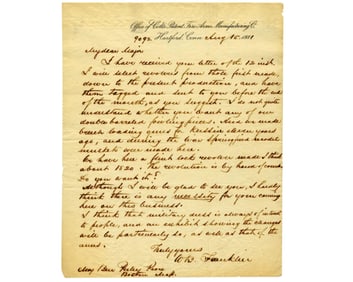 Office of Colt's Patent Fire Arms Manufacturing Co.
Hartford, Conn. Aug 15. 1881
My dear Major
I have received your letter of the 12 inst.
I will select revolvers from those first made,
down to the present production, and have
them tagged and sent to you before the end
of the month, as you suggest. I do not quite
understand whether you want any of our
double barreled fowling pieces. And we made
breech loading guns for Russia eleven years
ago, and during the war Springfield model
muskets were made here.
We have here a flint lock revolver made
about 1820. The revolution is by hand of course
Do you want it?
Although I will be glad to see you, I hardly
think there is any necessity for your coming
here on this business.
I think that military dress is always of interest
to people, and an exhibit showing the changes
will be particularly so, as well as that of the
arms.
Truly yours
W.B. Franklin
Maj Ben: Perley Poore
Boston Mass.